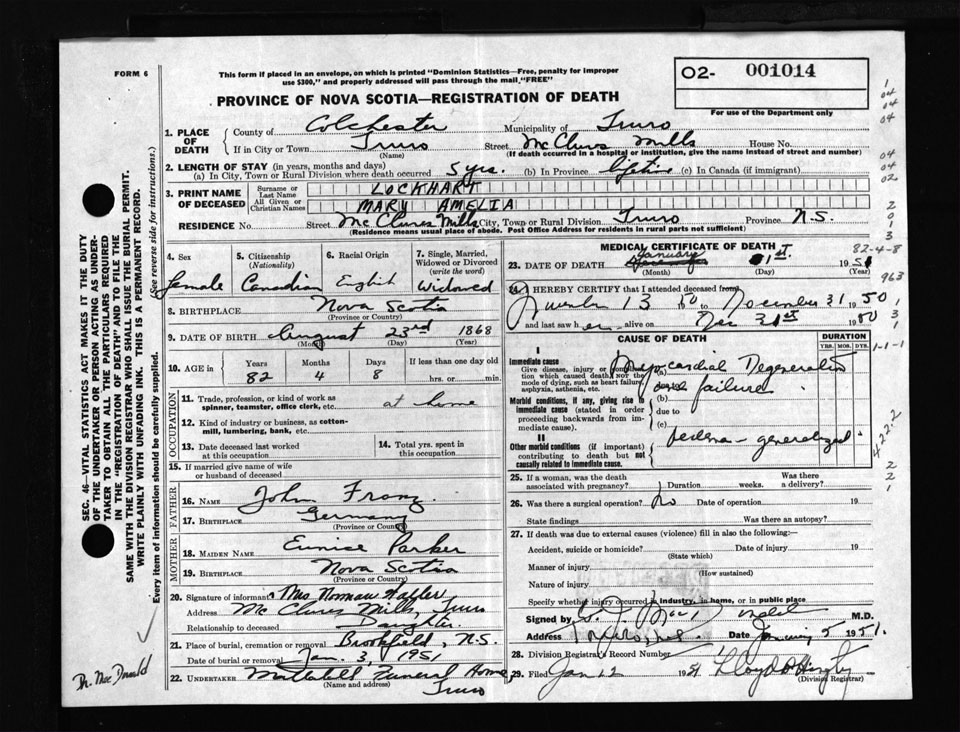 FORM 6
This form if placed in an envelope, on which is printed "Dominion Statistics—Free, penalty for improper
use $300," and properly addressed will pass through the mail "FREE"
O2- 001014
For use of the Department only
PROVINCE OF NOVA SCOTIA—REGISTRATION OF DEATH
1. PLACE OF DEATH
County of Colchester Municipality of Truro
If in City or Town Truro Street McClures Mills House No.
(Name) (If death occurred in a hospital or institution, give the name instead of street and number)
2. LENGTH OF STAY (in years, months and days)
(a) In City, Town or Rural Division where death occurred 5 yrs. (b) In Province lifetime (c) In Canada (if immigrant)
3. PRINT NAME OF DECEASED
Surname or Last Name LOCKHART
All Given or Christian Names MARY AMELIA
RESIDENCE No. Street McClures Mills City, Town or Rural Division Truro Province N.S.
(Residence means usual place of abode. Post Office Address for residents in rural parts not sufficient)
4. Sex
female
5. Citizenship
(Nationality)
Canadian
6. Racial Origin
English
7. Single, Married,
Widowed or Divorced
(write the word)
Widowed
8. BIRTHPLACE Nova Scotia
(Province or Country)
9. DATE OF BIRTH August 23rd 1868
(Month) (Day) (Year)
10. AGE in
Years Months Days If less than one day old
82 4 8 hrs. or min.
OCCUPATION
11. Trade, profession, or kind of work as
spinner, teamster, office clerk, etc. at home
12. Kind of industry or business, as cotton-
mill, lumbering, bank, etc.
13. Date deceased last worked
at this occupation
14. Total yrs. spent in
this occupation
15. If married give name of wife
or husband of deceased
FATHER
16. NAME John Franz
17. BIRTHPLACE Germany
(Province or Country)
MOTHER
18. MAIDEN NAME Eunice Parker
19. BIRTHPLACE Nova Scotia
(Province or Country)
20. Signature of informant Mrs Norman
Address McClures Mills, Truro
Relationship to deceased Daughter
21. Place of burial, cremation or removal Brookfield, N.S.
Date of burial or removal Jan. 3, 1951
22. UNDERTAKER Mattatall Funeral Home
(Name and address) Truro
MEDICAL CERTIFICATE OF DEATH
23. DATE OF DEATH January 1st 1951
(Month) (Day) (Year)
24. I HEREBY CERTIFY that I attended deceased from
13 50 to December 31 1950
and last saw her alive on Dec 31st 1950
CAUSE OF DEATH
DURATION
YRS. MOS. DYS.
I
Immediate cause
Give disease, injury or complication
which caused death, NOT the
mode of dying, such as heart failure,
asphyxia, asthenia, etc.
(a) Myocardial Degeneration
failure
Morbid conditions, if any, giving rise to
immediate cause (stated in order
proceeding backwards from im-
mediate cause).
(b)
due to
(c)
II
Other morbid conditions (if important)
contributing to death but not
causally related to immediate cause.
Oedema - generalized
25. If a woman, was the death
associated with pregnancy? Duration weeks. Was there
a delivery?
26. Was there a surgical operation? no Date of operation 19
State findings Was there an autopsy?
27. If death was due to external causes (violence) fill in also the following:—
Accident, suicide or homicide? Date of injury 19
(State which)
Manner of injury
(How sustained)
Nature of injury
Specify whether injury occurred in industry, in home, or in public place
Signed by M.D.
Address Date January 5 1951.
28. Division Registrar's Record Number
29. Filed Jan 12 1951 Lloyd
(Division Registrar)
SEC. 46—VITAL STATISTICS ACT MAKES IT THE DUTY
OF THE UNDERTAKER OR PERSON ACTING AS UNDER-
TAKER TO OBTAIN ALL THE PARTICULARS REQUIRED
IN THE "REGISTRATION OF DEATH" AND TO FILE THE
SAME WITH THE DIVISION REGISTRAR WHO SHALL ISSUE THE BURIAL PERMIT.
WRITE PLAINLY WITH UNFADING INK. THIS IS A PERMANENT RECORD.
Every item of information should be carefully supplied. (See reverse side for instructions.)
Dr. MacDonald
1
04
04
04
04
04
02
2
0
1
3
82-4-8
963
1
3
1
1-1-1
422-2
2
2
1